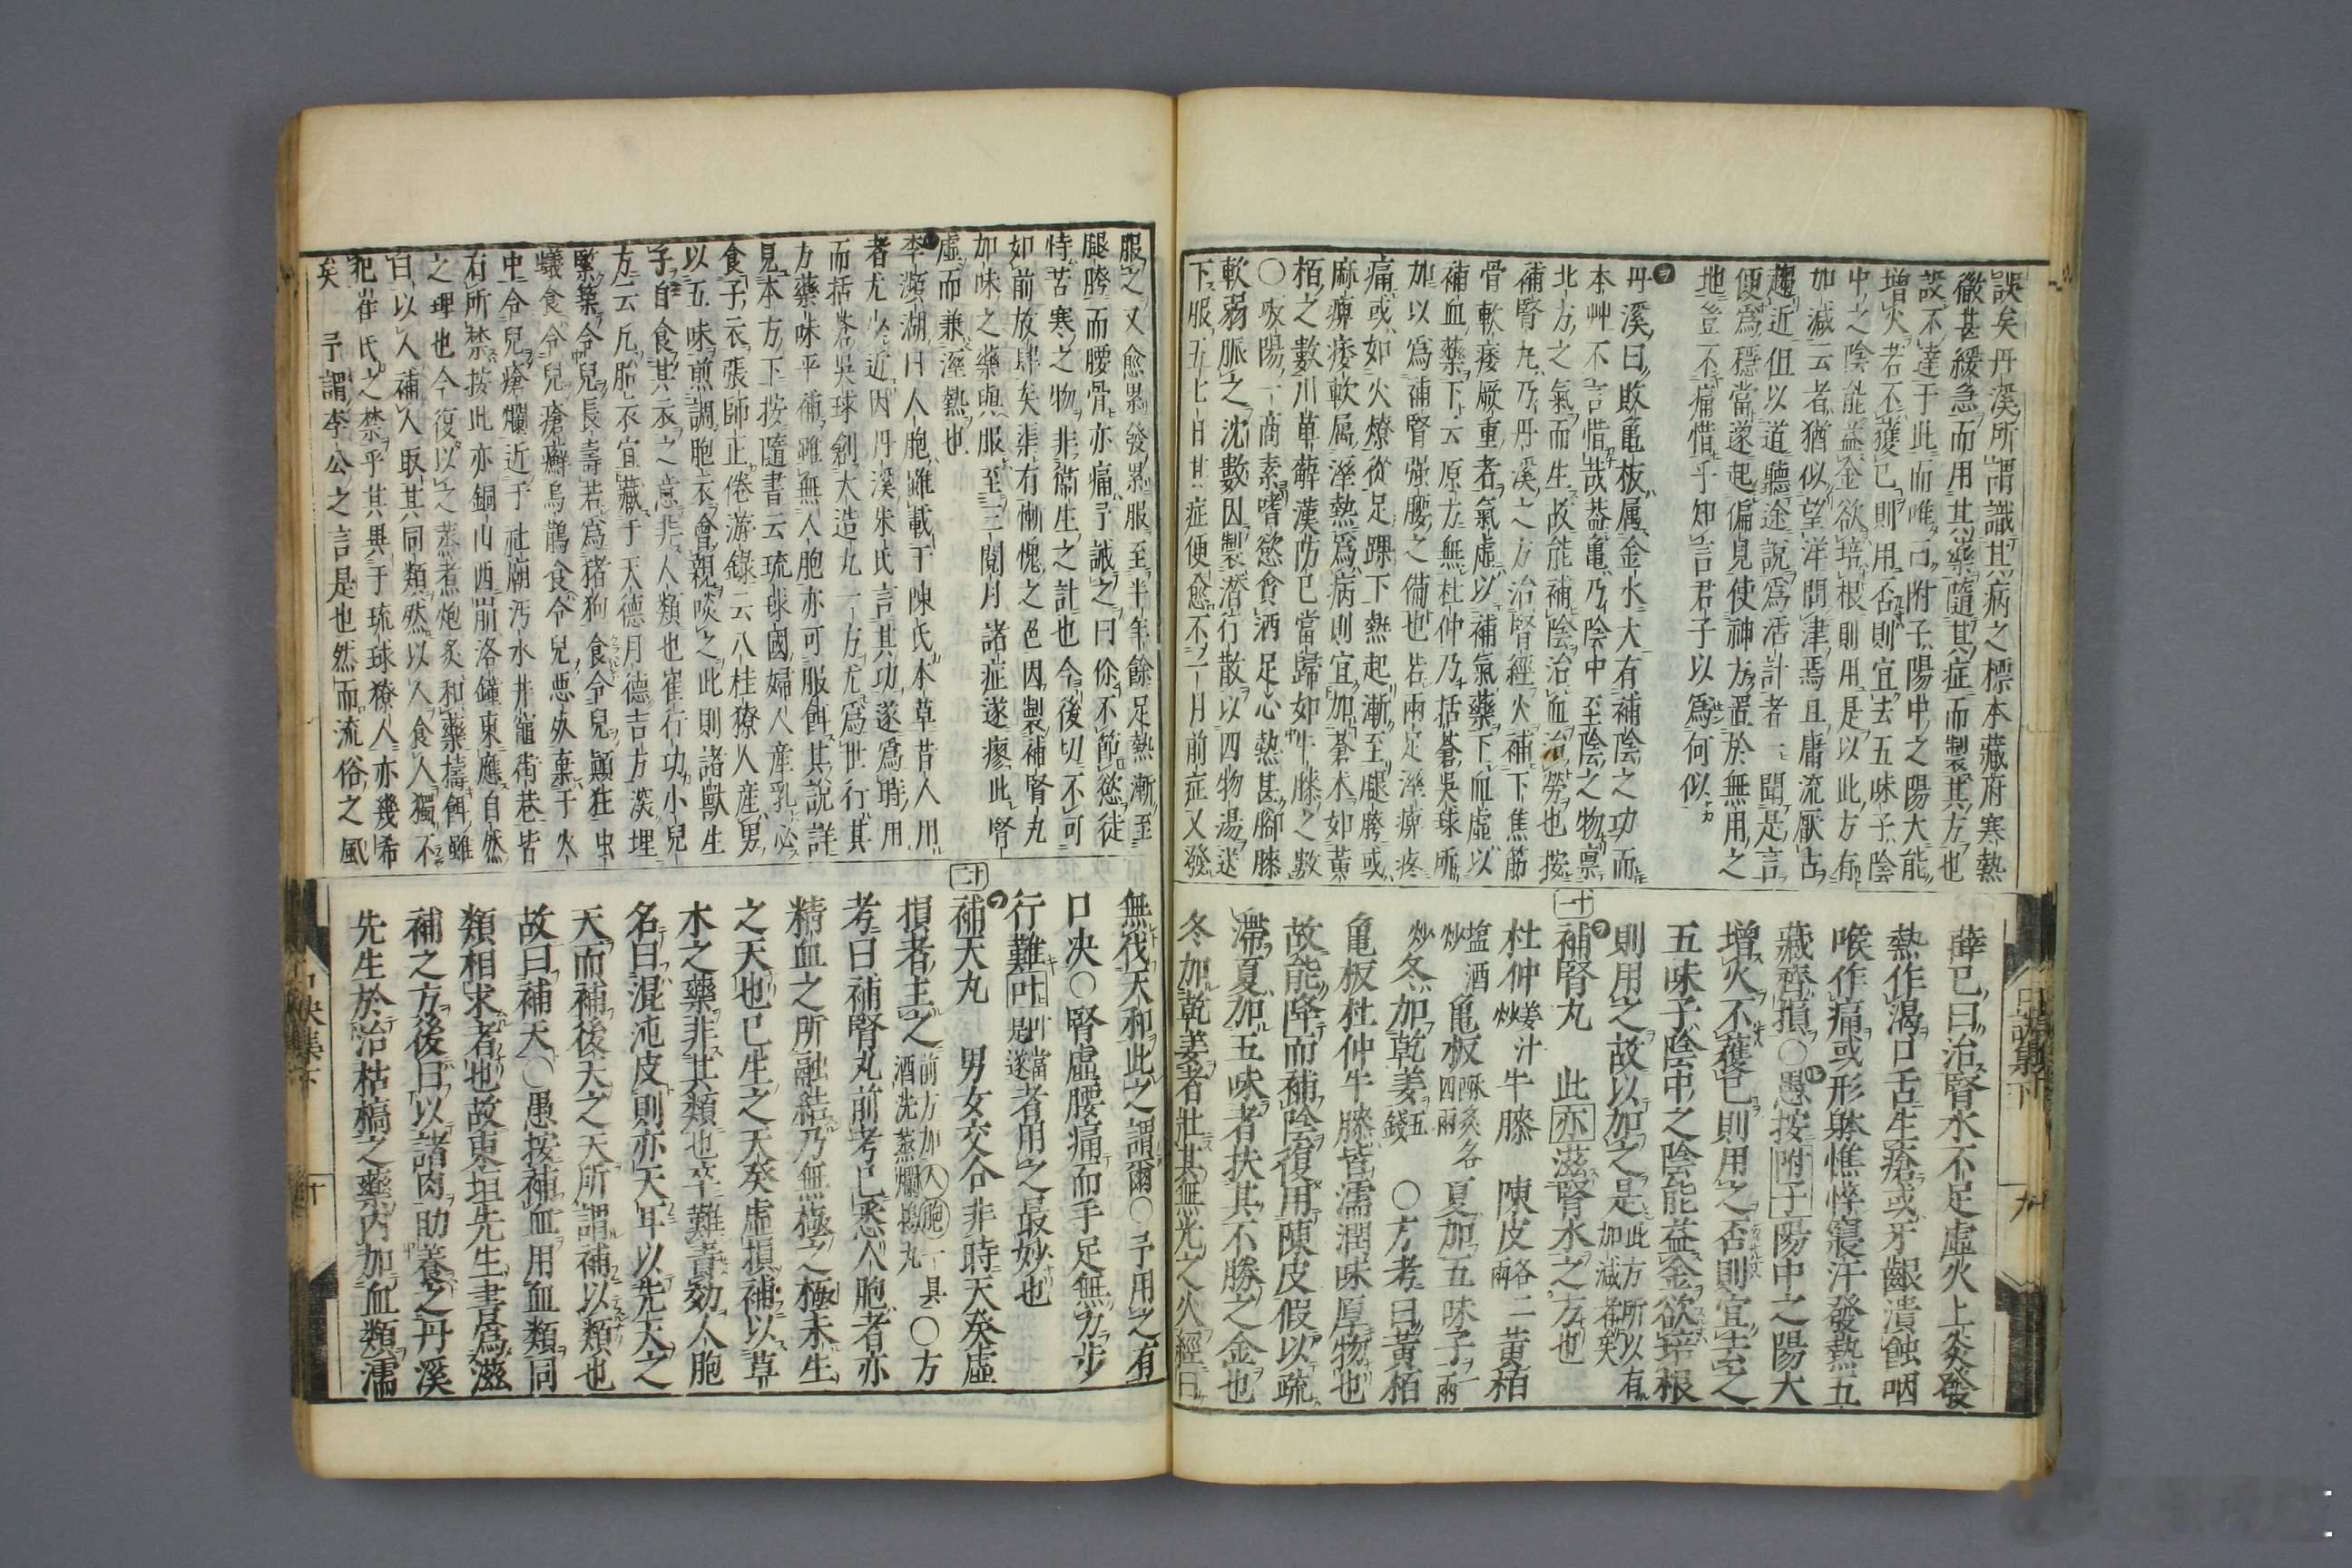 誤矣丹溪所謂識其病之標本藏府寒熱
微甚緩急而用其藥隨其症而製其方也
設不達于此而唯曰附子陽中之陽大能
增火若不獲已則用否則宜去五味子陰
中之陰能益金欲培根則用是以此方有
加減云者猶似望洋問津焉且庸流厭古
趨近但以道聽途說爲活計者一聞是言
便爲穩當遂起偏見使神方置於無用之
地豈不痛惜乎知言君子以爲何似
丹溪曰敗亀板属金水大有補陰之功而
本艸不言惜哉蓋亀乃陰中至陰之物禀
北方之氣而生故能補陰治血治勞也按
補腎丸乃丹溪之方治腎經火補下焦筋
骨軟痿厥重者氣虛以補氣藥下血虛以
補血藥下云原方無杜仲乃括蒼吳球所
加以爲補腎强腰之備也若兩足溼痹疼
痛或如火燎從足踝下熱起漸至腿胯或
麻痹痿軟属溼熱爲病則宜加蒼朮如黃
栢之數川萆薢漢防已當歸如牛膝之數
○㕮陽一商素嗜慾食酒足心熱甚腳膝
軟弱脈之沈數因製潛行散以四物湯送
下服五七日其症便愈不一月前症又發
薛已曰治腎水不足虛火上炎發
熱作渴口舌生瘡或牙齦潰蝕咽
喉作痛或形躰憔悴寢汗發熱五
藏齊損○愚按附子陽中之陽大
增火不獲已則用之否則宜去之
五味子陰中之陰能益金欲培根
則用之故以加之是此方所以有加減者矣
十一
補腎丸　此亦滋腎水之方也
杜仲姜汁炒牛膝　陳皮各二兩黃栢
塩酒炒亀板酥炙各四兩夏加五味子一兩
炒冬加乾姜五錢　○方考曰黃栢
亀板杜仲牛膝皆濡潤味厚物也
故能降而補陰復用陳皮假以疏
滯夏加五味者扶其不勝之金也
冬加乾姜者壯其無光之火經曰
服之又愈累發累服至半年餘足熱漸至
腿胯而腰骨亦痛予誡之曰你不節慾徒
恃苦寒之物非衛生之計也今後切不可
如前放肆矣渠有慚愧之色因製補腎丸
加味之藥與服至三閱月諸症遂瘳此腎
虛而兼溼熱也
李瀕湖曰人胞雖載于陳氏本草昔人用
者尤少近因丹溪朱氏言其功遂爲時用
而括蒼吳球創大造丸一方尤爲世行其
方藥味平補雖無人胞亦可服餌其說詳
見本方下按隨書云琉球國婦人産乳必
食子衣張師正倦游錄云八桂獠人産男
以五味煎調胞衣會親啖之此則諸獸生
子自食其衣之意非人類也崔行功小兒
方云凡胞衣宜藏于天德月德吉方深埋
緊築令兒長壽若爲猪狗食令兒顚狂虫
蟻食令兒瘡癬烏鵲食令兒惡死棄于火
中令兒瘡爛近于社廟汚水井竈街巷皆
有所禁按此亦銅山西崩洛鍾東應自然
之理也今復以之蒸煮炮炙和藥擣餌雖
曰以人補人取其同類然以人食人獨不
犯崔氏之禁乎其異于琉球獠人亦幾希
矣　予謂李公之言是也然而流俗之風
無伐天和此之謂爾○予用之有
口决○腎虛腰痛而手足無力步
行難叶當遂者用之最妙也
十二
補天丸　男女交合非時天癸虛
損者主之前方加人胞一具酒洗蒸爛搗丸○方
考曰補腎丸前考已悉人胞者亦
精血之所融結乃無極之極未生
之天也已生之天癸虛損補以草
木之藥非其類也卒難責効人胞
名曰混沌皮則亦天耳以先天之
天而補後天之天所謂補以類也
故曰補天○愚按補血用血類同
類相求者也故東垣先生書爲滋
補之方後曰以諸肉助養之丹溪
先生於治枯槁之藥內加血類濡
口訣集下
九
口决集下
十